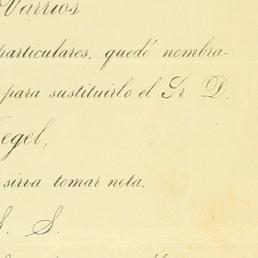 Varrios
particulares, quedó nombra-
para sustituirlo el Sr D.
egel,
sirva tomar nota.
S. S.